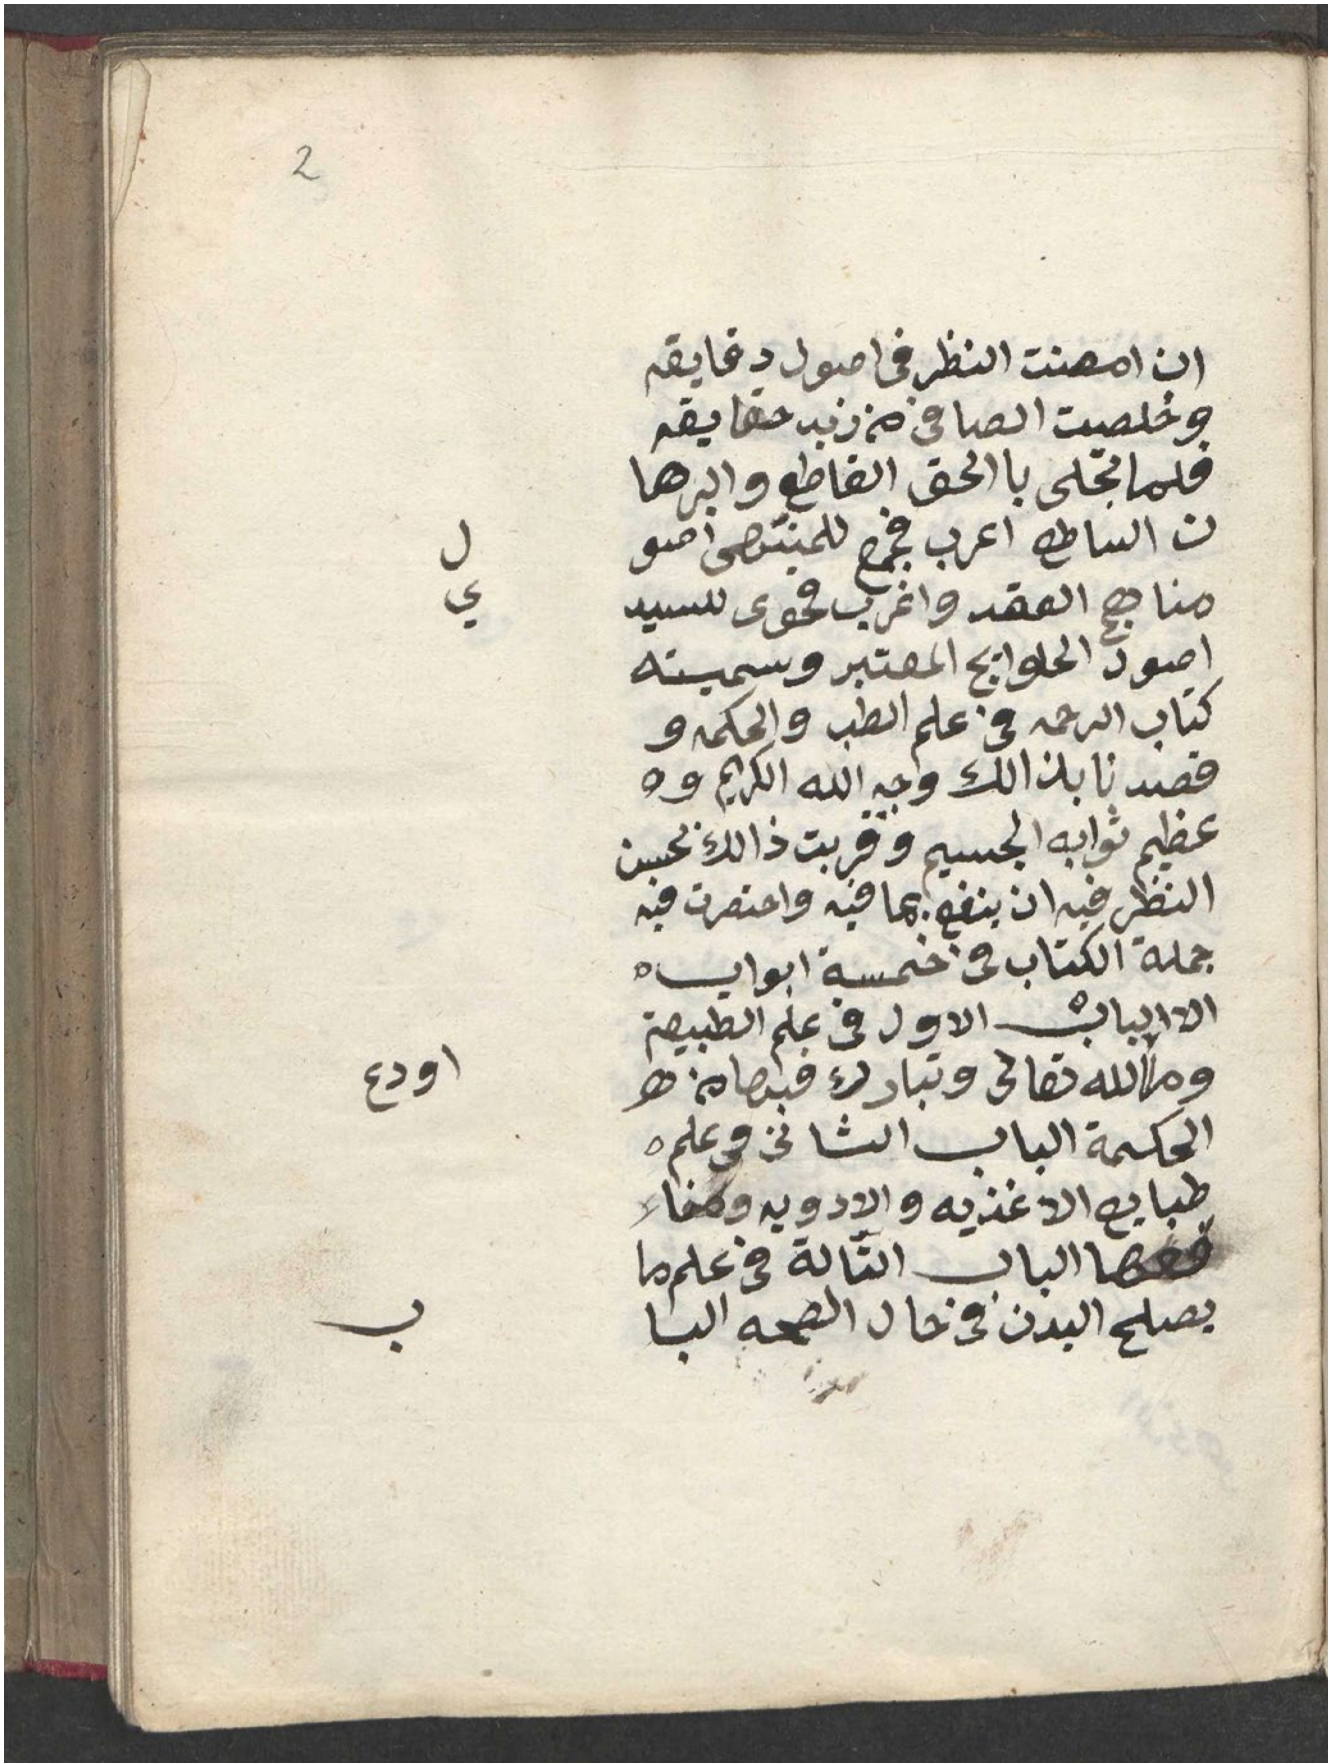 2
ان امعنت النظر فى اصول دقايقه
وخلصت الصافى من زبد حقايقه
فلما تجلى باالحق القاطع والبرها
ن الساطع اعرب فجمع للمبتدى اصو ل
مناهج العقد واغرب فحوى للسيد ي
اصول الحلوايج المعتبر وسميته
كتاب الرحمه فى علم الطب والحكمه و
قصدنا بذالك وجه الله الكريم وه
عظيم ثوابه الجسيم وقربت ذالك لحسن
النظر فيه ان ينفع بما فيه واختصرت فيه
جملة الكتاب فى خمسة ابواب ه
الالباب الاول فى علم الطبيعة
وما الله تعالى وتبارك فيها من ط اودع
الحكمة الباب الثانى فى علم ه
طبايع الاغذيه والادويه ومنا
فعها الباب الثالة فى علم ما
يصلح البدن فى حال الصحه البا ب